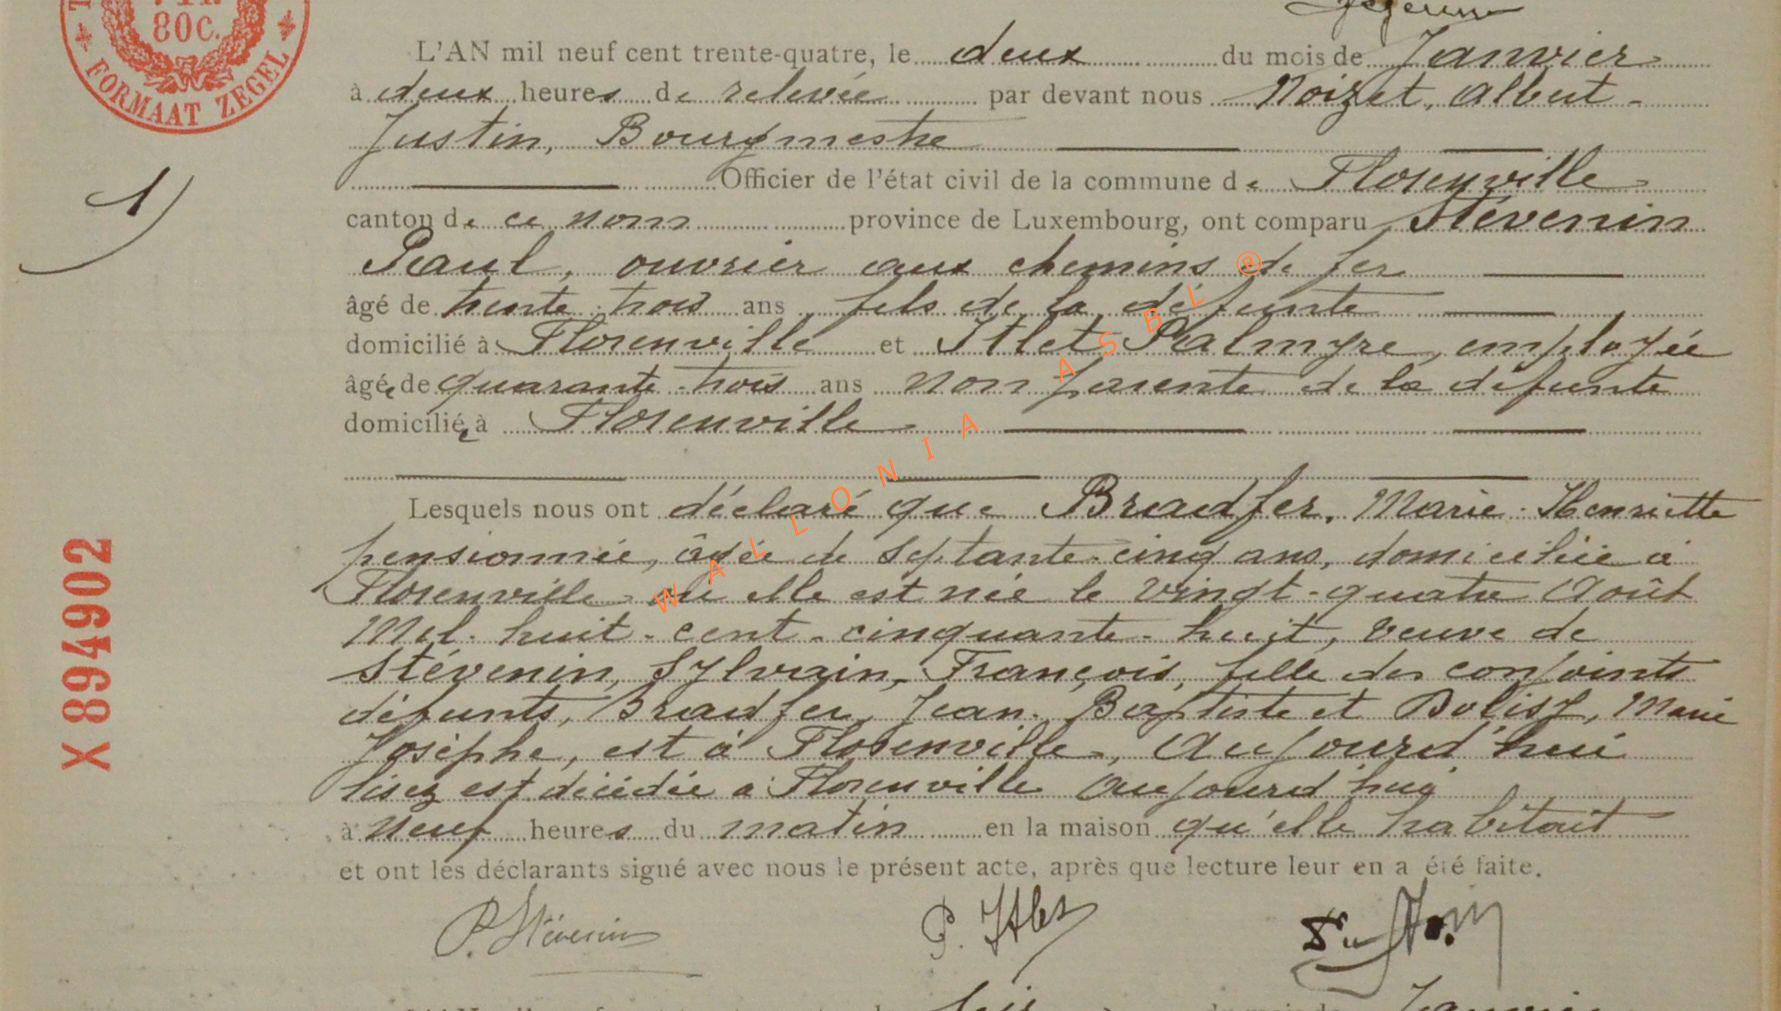 80C.
FORMAAT ZEGEL
L'AN mil neuf cent trente-quatre, le deux du mois de Janvier
à deux heures de relevée par devant nous Noizet, Albert
Justin, Bourgmestre
Officier de l'état civil de la commune de Florenville
1)
canton de ce nom province de Luxembourg, ont comparu Stévenin
Paul, ouvrier aux chemins de fer
âgé de trente-trois ans fils de la défunte
domicilié à Florenville et Itlet Palmyre, employée
âgée de quarante-trois ans non parente de la défunte
domiciliée à Florenville
WALLONIA ASBL ®
Lesquels nous ont déclaré que Bradfer, Marie-Henriette
pensionnée, âgée de septante-cinq ans, domiciliée à
Florenville où elle est née le vingt-quatre Août
Mil-huit-cent-cinquante-huit, veuve de
Stévenin, Sylvain, François, fille des conjoints
défunts, Bradfer, Jean-Baptiste et Dolisy, Marie
Josèphe, est à Florenville, Aujourd'hui
lisez est décédée à Florenville aujourd'hui
à neuf heures du matin en la maison qu'elle habitait
et ont les déclarants signé avec nous le présent acte, après que lecture leur en a été faite.
X 894902
P. Stévenin
P. Itlet
L'AN
du mois de Janvier